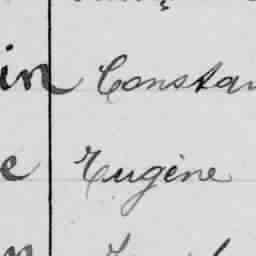 in Constan
e Eugène